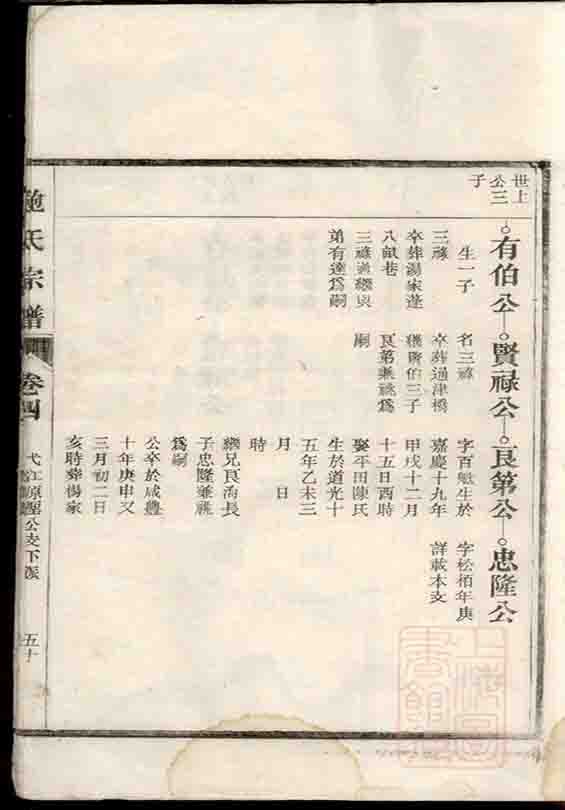 世上
公三
子
有伯公
生一子
三祿
卒葬湯家蓬
八畝巷
三祿過繼與
弟有達爲嗣
賢祿公
名三祿
卒葬通津橋
繼賢伯三子
良第兼祧爲
嗣
良第公
字百魁生於
嘉慶十九年
甲戌十二月
十五日酉時
娶平田陳氏
生於道光十
五年乙未三
月 日
時
繼兄良海長
子忠隆兼祧
爲嗣
公卒於咸豐
十年庚申又
三月初二日
亥時葬楊家
忠隆公
字松栢年庚
詳載本支
施氏宗譜
卷四
公支下派
五十
上海圖書館